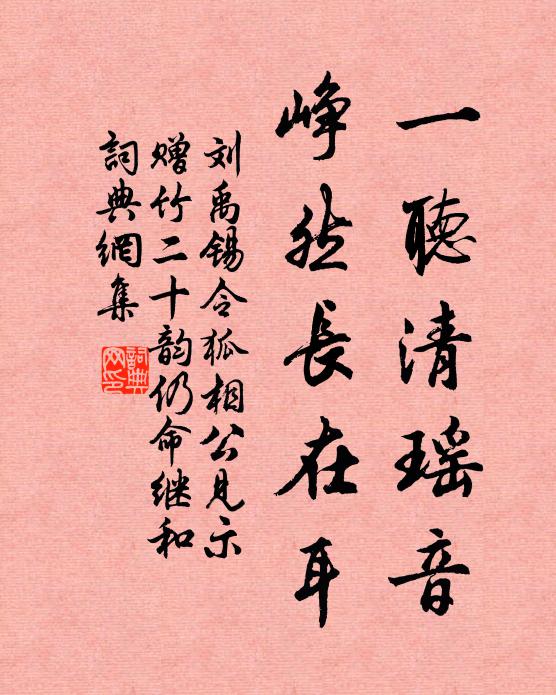 一聽清瑶音
峥然長在耳
刘禹锡令狐相公见示
赠竹二十韵仍命继和
詞典網集
詞典網印